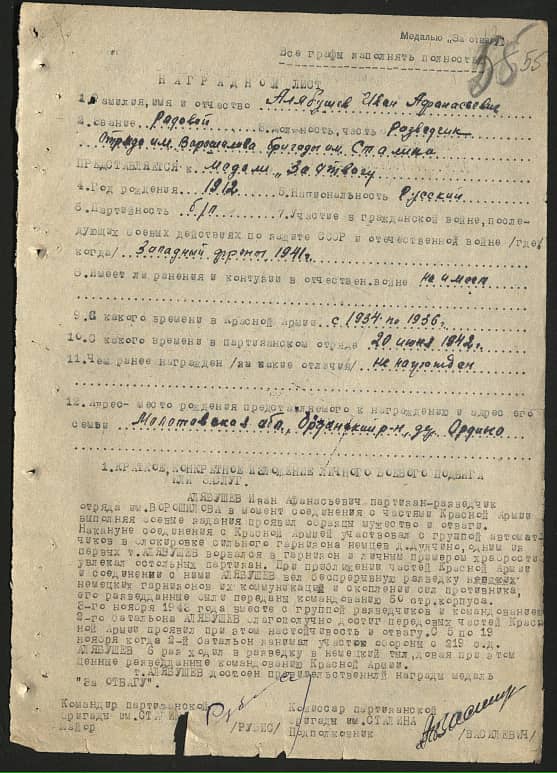 Медалью "За отвагу"
Все графы заполнять полностью
55
НАГРАДНОЙ ЛИСТ
1. Фамилия, имя и отчество Алябушев Иван Афанасьевич
2. звание Рядовой 3. должность, часть Разведчик
Отряда им. Ворошилова бригады им. Сталина
ПРЕДСТАВЛЯЕТСЯ к медали "За отвагу"
4. Год рождения 1912 5. Национальность Русский
6. Партийность б/п 7. Участие в гражданской войне, после-
дующих боевых действиях по защите СССР и отечественной войне /где
когда/ Западный фронт 1941г.
8. Имеет ли ранения и контузии в отечествен. войне не имеет
9. С какого времени в Красной Армии с 1934 по 1936г.
10. С какого времени в партизанском отряде 20 июня 1942г.
11. Чем ранее награжден /за какие отличия/ не награжден
12. Адрес- место рождения представляемого к награждению и адрес его
семьи Молотовская обл., р-н, д. Ордино
1. КРАТКОЕ, КОНКРЕТНОЕ ИЗЛОЖЕНИЕ ЛИЧНОГО БОЕВОГО ПОДВИГА
ИЛИ ЗАСЛУГ.
АЛЯБУШЕВ Иван Афанасьевич партизан-разведчик
отряда им. ВОРОШИЛОВА в момент соединения с частями Красной Армии
выполняя боевые задания проявил образцы мужество и отваги.
Накануне соединения с Красной Армией участвовал с группой автомат-
чиков в блокировке сильного гарнизона немцев д. Дучино, одним из
первых т. АЛЯБУШЕВ ворвался в гарнизон и личным примером храбрости
увлекал остальных партизан. При приближении частей Красной Армии
и соединении с ними АЛЯБУШЕВ вел беспрерывную разведку
немецких гарнизонов их коммуникаций и скопления сил противника,
его разведданные были переданы командованию 60 стр. корпуса.
3-го ноября 1943 года вместе с группой разведчиков и командованием
2-го батальона АЛЯБУШЕВ благополучно достиг передовых частей Крас-
ной Армии проявил при этом настойчивость и отвагу. С 5 по 19
ноября когда 2-й батальон занимал участок обороны с 219 с.д.
АЛЯБУШЕВ 6 раз ходил в разведку в немецкий тыл, давая при этом
ценные разведданные командованию Красной Армии.
т. АЛЯБУШЕВ достоен правительственной награды медаль
"За ОТВАГУ".
Командир партизанской Комиссар партизанской
бригады им. СТАЛИНА бригады им. СТАЛИНА
Майор /РУБИС/ Подполковник /ВАСИЛЕВИЧ/